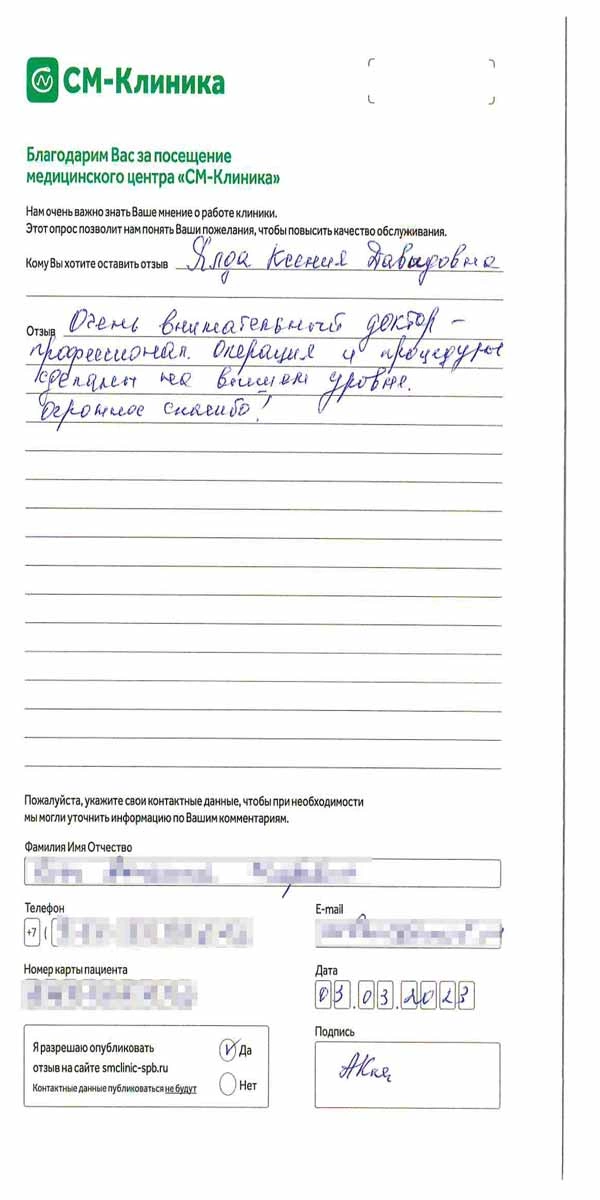 СМ-Клиника
Благодарим Вас за посещение
медицинского центра «СМ-Клиника»
Нам очень важно знать Ваше мнение о работе клиники.
Этот опрос позволит нам понять Ваши пожелания, чтобы повысить качество обслуживания.
Кому Вы хотите оставить отзыв Ялда Ксения Давыдовна
Отзыв Очень внимательный доктор –
профессионал. Операция и процедуры
сделаны на высшем уровне.
Огромное спасибо!
Пожалуйста, укажите свои контактные данные, чтобы при необходимости
мы могли уточнить информацию по Вашим комментариям.
Фамилия Имя Отчество
Телефон E-mail
+7 (
Номер карты пациента Дата
03.03.2023
Я разрешаю опубликовать V Да Подпись
отзыв на сайте smclinic-spb.ru
Контактные данные публиковаться не будут Нет